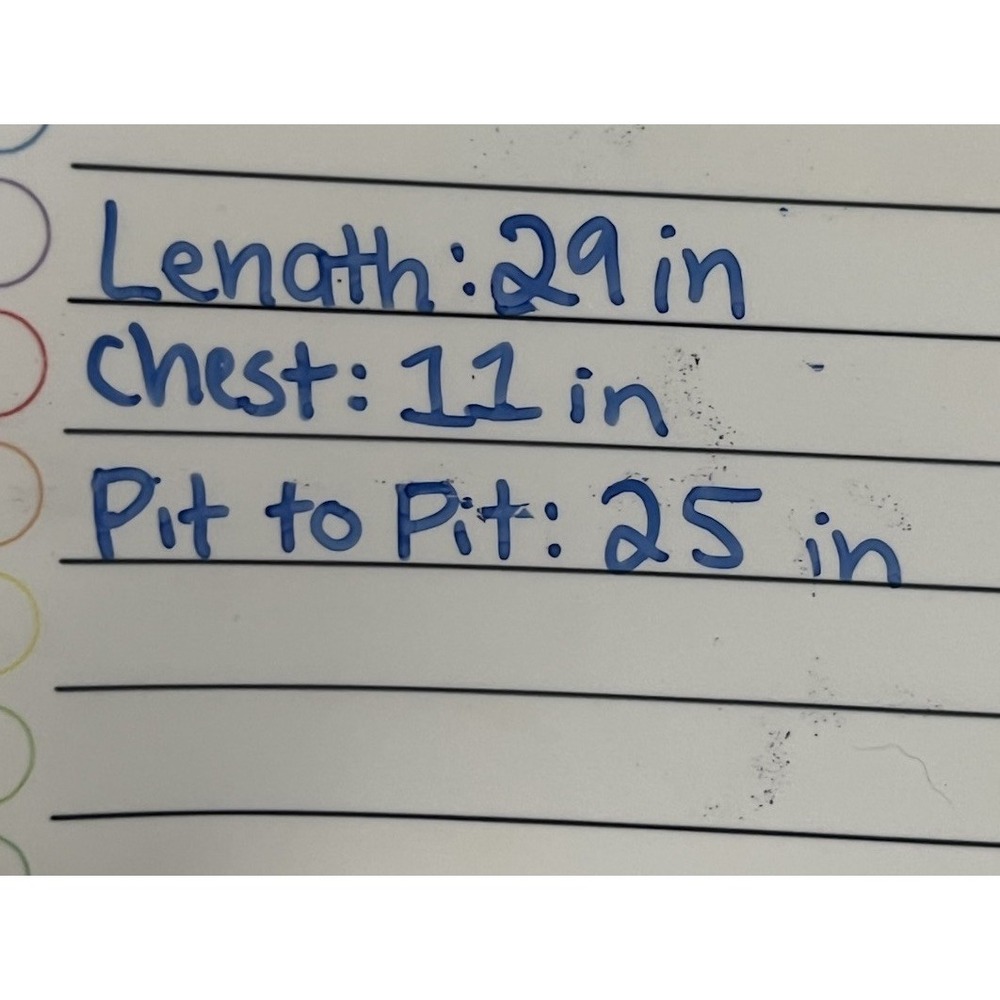 Length: 29 in
Chest: 11 in
Pit to Pit: 25 in